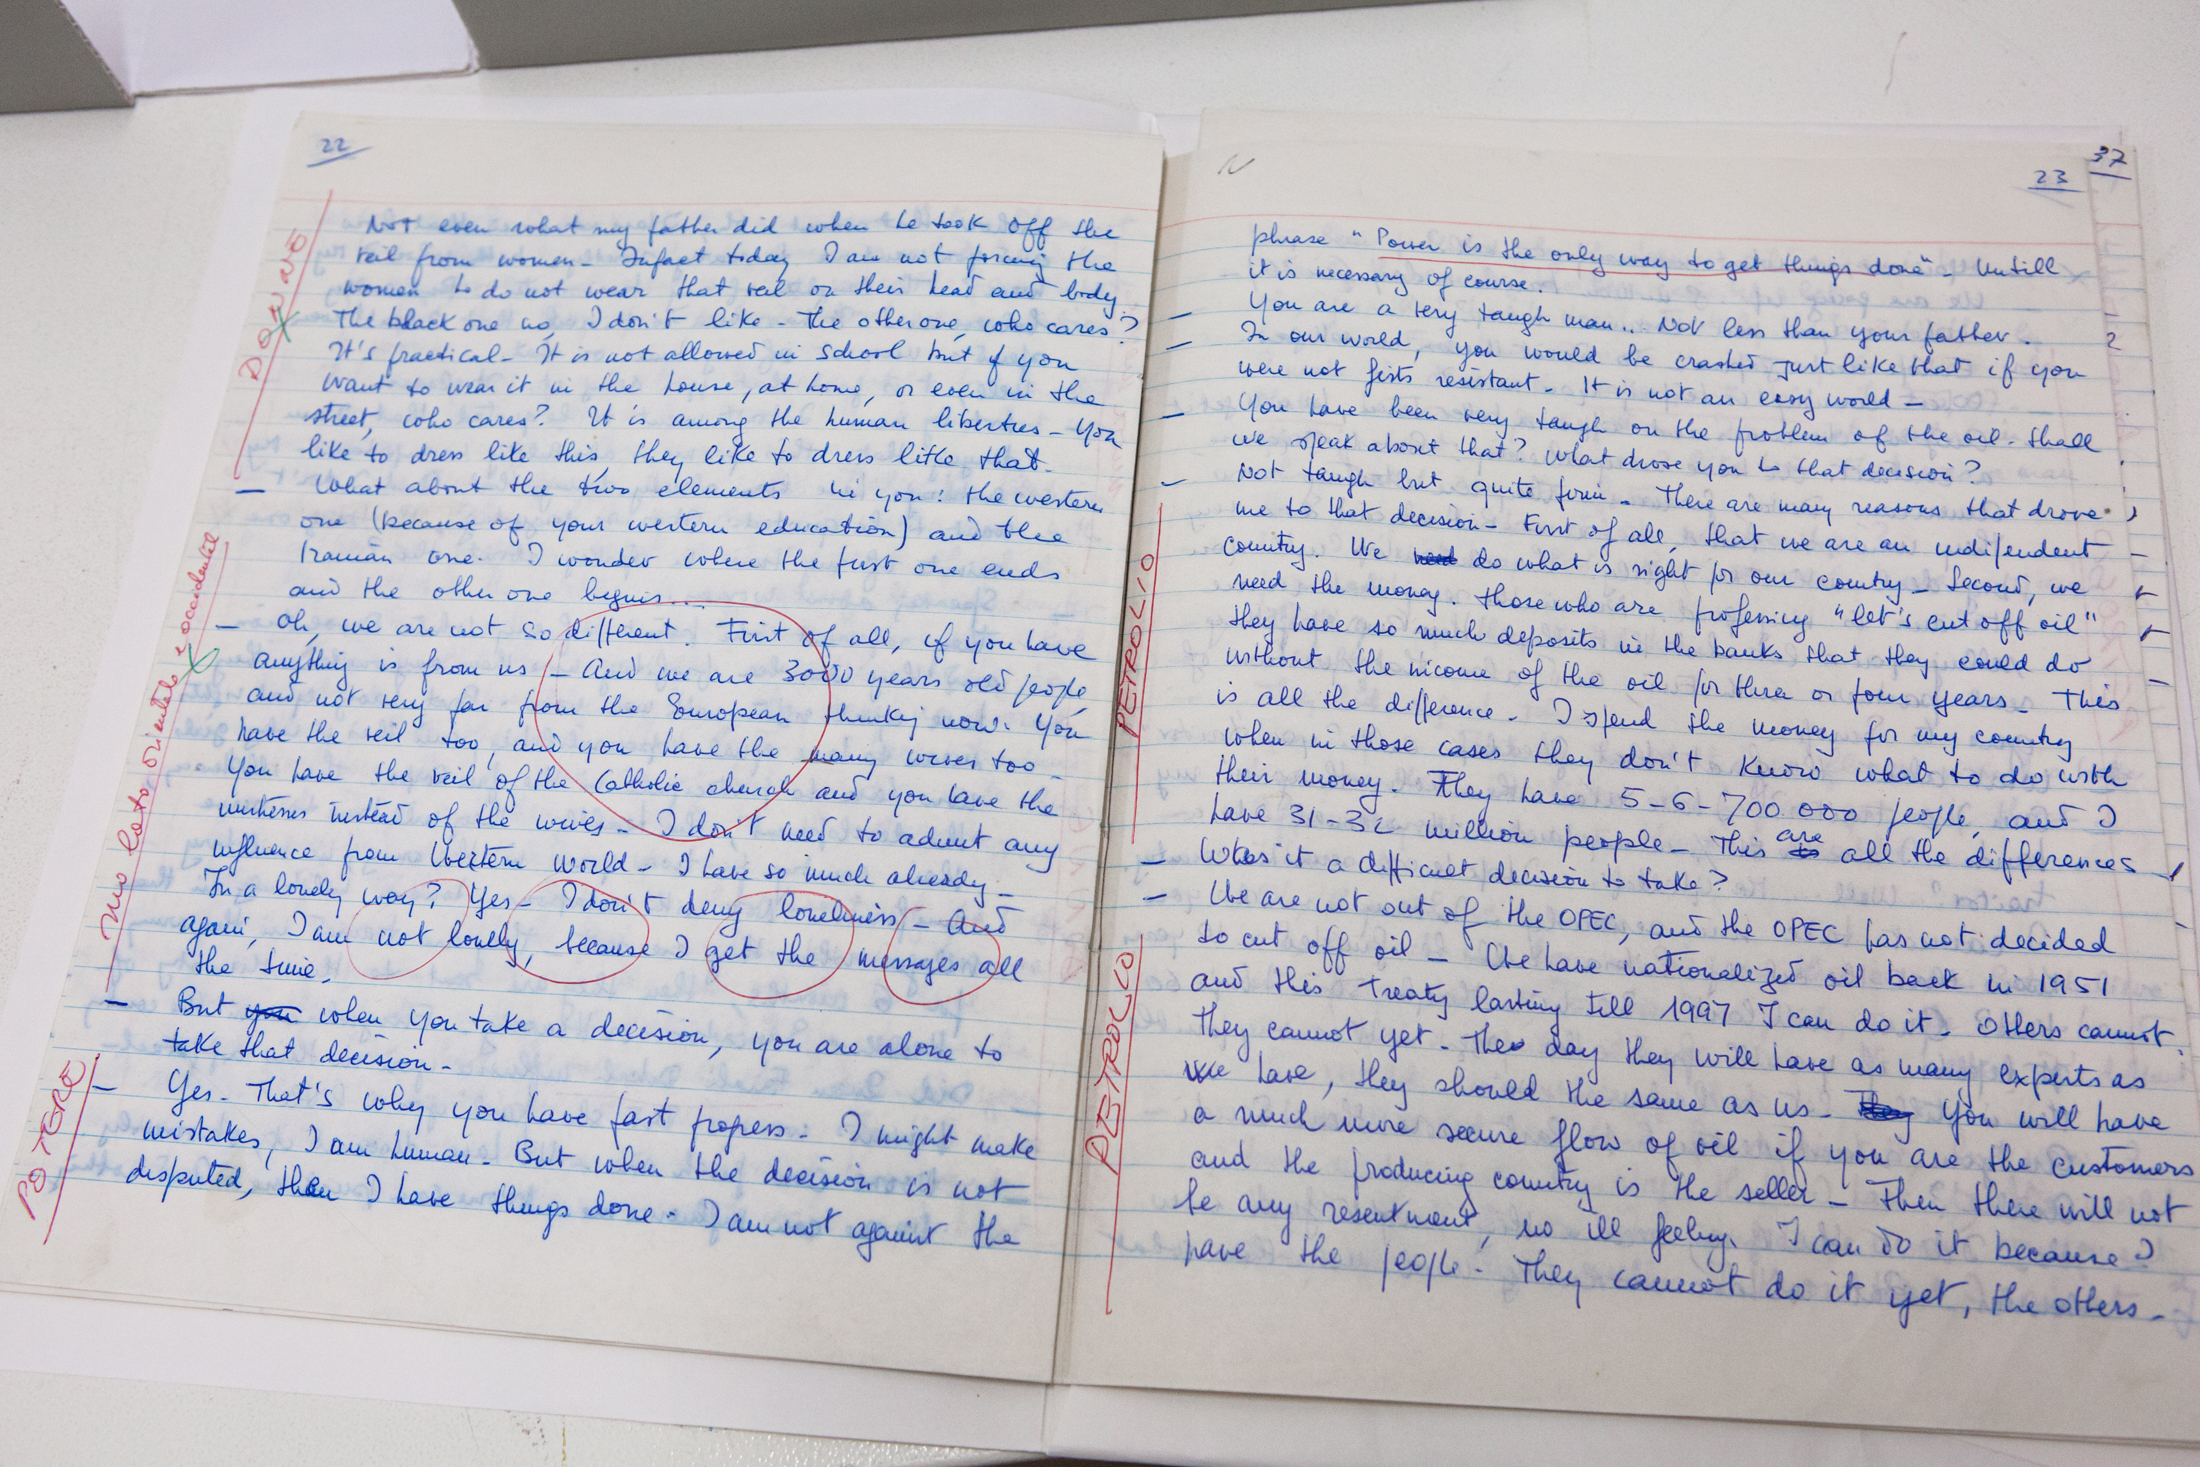 22
DONNE
Not even what my father did when he took off the
veil from women - Infact today I am not forcing the
women to do not wear that veil on their head and body
The black one no, I don't like - The other one, who cares?
It's practical - It is not allowed in school but if you
want to wear it in the house, at home, or even in the
street, who cares? It is among the human liberties - You
like to dress like this, they like to dress litke that -
- What about the two elements in you: the western
one (because of your western education) and the
Iranian one. I wonder where the first one ends
and the other one begins...
suo lato orientale e occidentale
- Oh, we are not so different. First of all, if you have
anything is from us - And we are 3000 years old people,
and not very far from the European thinking now. You
have the veil too, and you have the many wives too -
You have the veil of the Catholic church and you have the
mistresses instead of the wives - I don't need to admit any
influence from Western world - I have so much already -
In a lonely way? Yes - I don't deny loneliness - And
again, I am not lonely, because I get the messages all
the time.
- But you when you take a decision, you are alone to
take that decision -
POTERE
- Yes - That's why you have fast progress - I might make
mistakes, I am human - But when the decision is not
disputed, then I have things done - I am not against the
37
23
phrase "Power is the only way to get things done" - Untill
it is necessary of course.
- You are a very taugh man.. Not less than your father.
- In our world, you would be crashed just like that if you
were not fists resistant - It is not an easy world -
- You have been very taugh on the problem of the oil - Shall
we speak about that? What drove you to that decision?
PETROLIO
- Not taugh but quite firm - There are many reasons that drove
me to that decision - First of all, that we are an indipendent
country. We need do what is right for our country - Second, we
need the money. Those who are professing "let's cut off oil"
they have so much deposits in the banks that they could do
without the income of the oil for three or four years - This
is all the difference - I spend the money for my country
when in those cases they don't know what to do with
their money. They have 5-6-700.000 people, and I
have 31-32 million people - This is are all the differences
- Was it a difficult decision to take?
PETROLIO
- We are not out of the OPEC, and the OPEC has not decided
to cut off oil - We have nationalized oil back in 1951
and this treaty lasting till 1997 I can do it - Others cannot.
They cannot yet - The day they will have as many experts as
we have, they should the same as us - They You will have
a much more secure flow of oil if you are the customers
and the producing country is the seller - Then there will not
be any resentment, no ill feeling. I can do it because I
have the people - They cannot do it yet, the others -